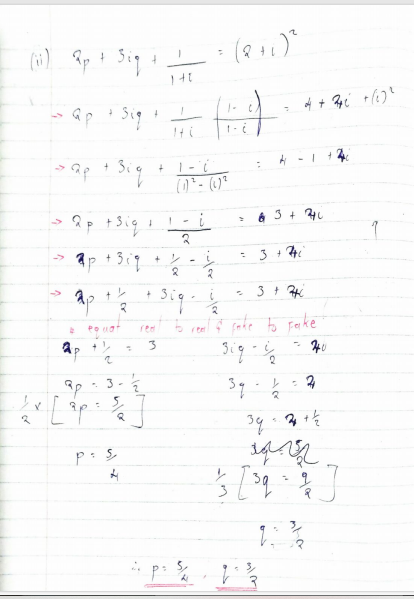 (ii) 2p + 3iq + 1/(1+i) = (2+i)²
→ 2p + 3iq + 1/(1+i) (1-i)/(1-i) = 4 + 4i + (i)²
→ 2p + 3iq + (1-i)/((1)²-(i)²) = 4 - 1 + 4i
→ 2p + 3iq + (1-i)/2 = 3 + 4i
→ 2p + 3iq + 1/2 - i/2 = 3 + 4i
→ 2p + 1/2 + 3iq - i/2 = 3 + 4i
equat real to real & fake to fake
2p + 1/2 = 3    3iq - i/2 = 4i
2p = 3 - 1/2    3q - 1/2 = 4
1/2 × [2p = 5/2]    3q = 4 + 1/2
p = 5/4    1/3 [3q = 9/2]
q = 3/2
∴ p = 5/4, q = 3/2